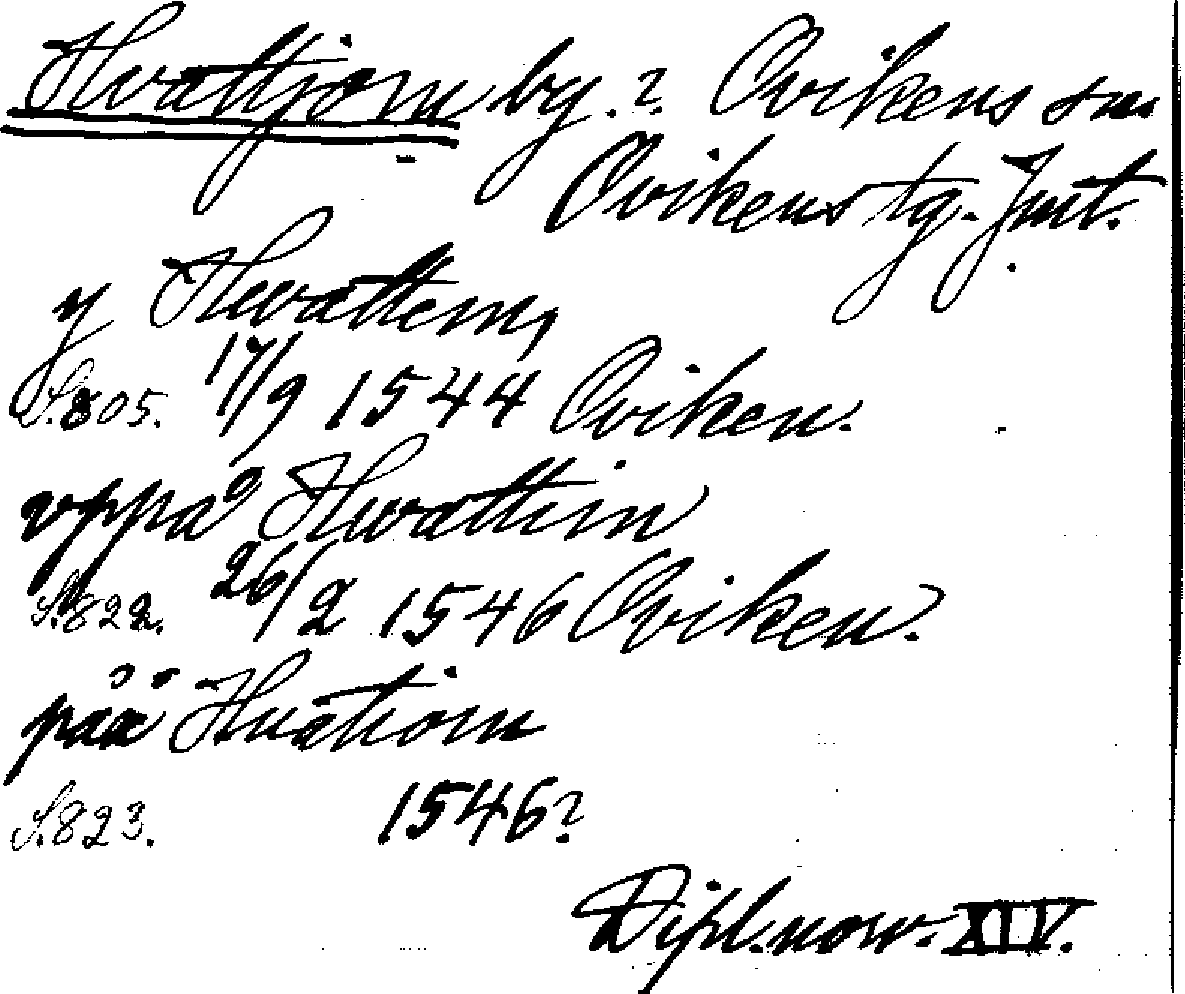 Hvattjom by.? Ovikens sn.
Ovikens tg. Jmt.
y Hwattem,
S.805. 17/9 1544 Oviken.
vppå Hwattim
S.822. 26/2 1546 Oviken.
påå Huatiom
S.823. 1546?
Dipl. norv. XIV.